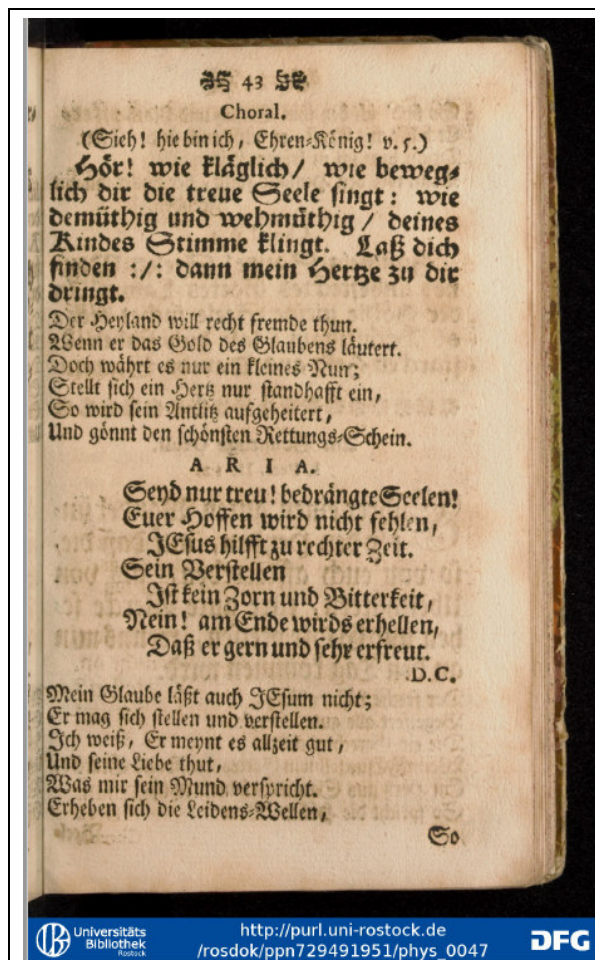 43
Choral.
(Sieh! hie bin ich, Ehren-König! v. 5.)
Hör! wie kläglich/ wie beweg-
lich dir die treue Seele singt: wie
demüthig und wehmüthig/ deines
Kindes Stimme klingt. Laß dich
finden :/: dann mein Hertze zu dir
dringt.
Der Heyland will recht fremde thun.
Wenn er das Gold des Glaubens läutert.
Doch währt es nur ein kleines Nun;
Stellt sich ein Hertz nur standhafft ein,
So wird sein Antlitz aufgeheitert,
Und gönnt den schönsten Rettungs-Schein.
ARIA.
Seyd nur treu! bedrängte Seelen!
Euer Hoffen wird nicht fehlen,
JEsus hilfft zu rechter Zeit.
Sein Verstellen
Ist kein Zorn und Bitterkeit,
Nein! am Ende wirds erhellen,
Daß er gern und sehr erfreut.
D.C.
Mein Glaube läßt auch JEsum nicht;
Er mag sich stellen und verstellen.
Ich weiß, Er meynt es allzeit gut,
Und seine Liebe thut,
Was mir sein Mund verspricht.
Erheben sich die Leidens-Wellen,
So
Universitäts
Bibliothek
Rostock
http://purl.uni-rostock.de
/rosdok/ppn729491951/phys_0047
DFG